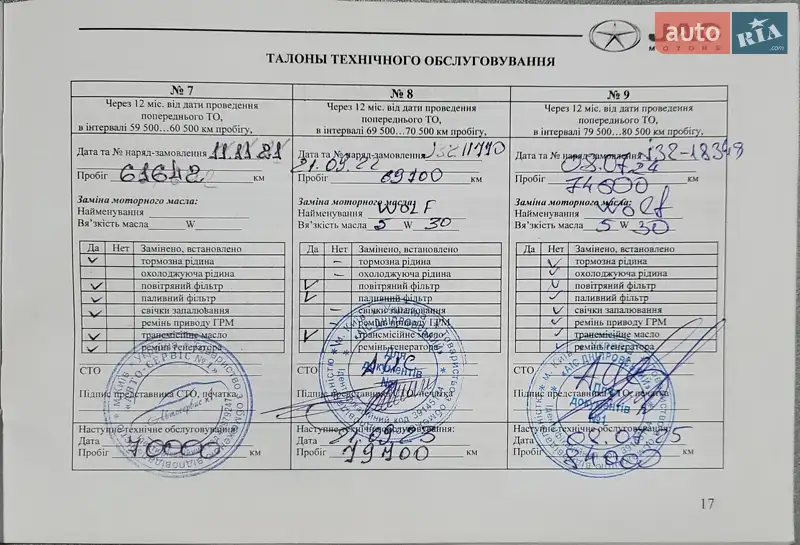 JAC
MOTORS
auto RIA .com
ТАЛОНЫ ТЕХНІЧНОГО ОБСЛУГОВУВАННЯ
№ 7
Через 12 міс. від дати проведення
попереднього ТО,
в інтервалі 59 500...60 500 км пробігу,
Дата та № наряд-замовлення 11.11.21
Пробіг 61642 км
Заміна моторного масла:
Найменування
В'язкість масла W
Да Нет Замінено, встановлено
тормозна рідина
охолоджуюча рідина
повітряний фільтр
паливний фільтр
свічки запалювання
ремінь приводу ГРМ
трансмісійне масло
ремінь генератора
СТО
Підпис представника СТО, печатка
Наступне технічне обслуговування:
Дата
Пробіг 70000 км
№ 8
Через 12 міс. від дати проведення
попереднього ТО,
в інтервалі 69 500...70 500 км пробігу,
Дата та № наряд-замовлення
21.09.22
Пробіг 69100 км
Заміна моторного масла:
Найменування WOLF
В'язкість масла 5 W 30
Да Нет Замінено, встановлено
тормозна рідина
охолоджуюча рідина
повітряний фільтр
паливний фільтр
свічки запалювання
ремінь приводу ГРМ
трансмісійне масло
ремінь генератора
СТО
Підпис представника СТО, печатка
Для
документів
Наступне технічне обслуговування:
Дата 21.09.23
Пробіг 79100 км
№ 9
Через 12 міс. від дати проведення
попереднього ТО,
в інтервалі 79 500...80 500 км пробігу,
Дата та № наряд-замовлення j32-18348
03.07.24
Пробіг 74000 км
Заміна моторного масла:
Найменування Wolf
В'язкість масла 5 W 30
Да Нет Замінено, встановлено
тормозна рідина
охолоджуюча рідина
повітряний фільтр
паливний фільтр
свічки запалювання
ремінь приводу ГРМ
трансмісійне масло
ремінь генератора
СТО
Підпис представника СТО, печатка
Для
документів
Наступне технічне обслуговування:
Дата
Пробіг 84000 км
17